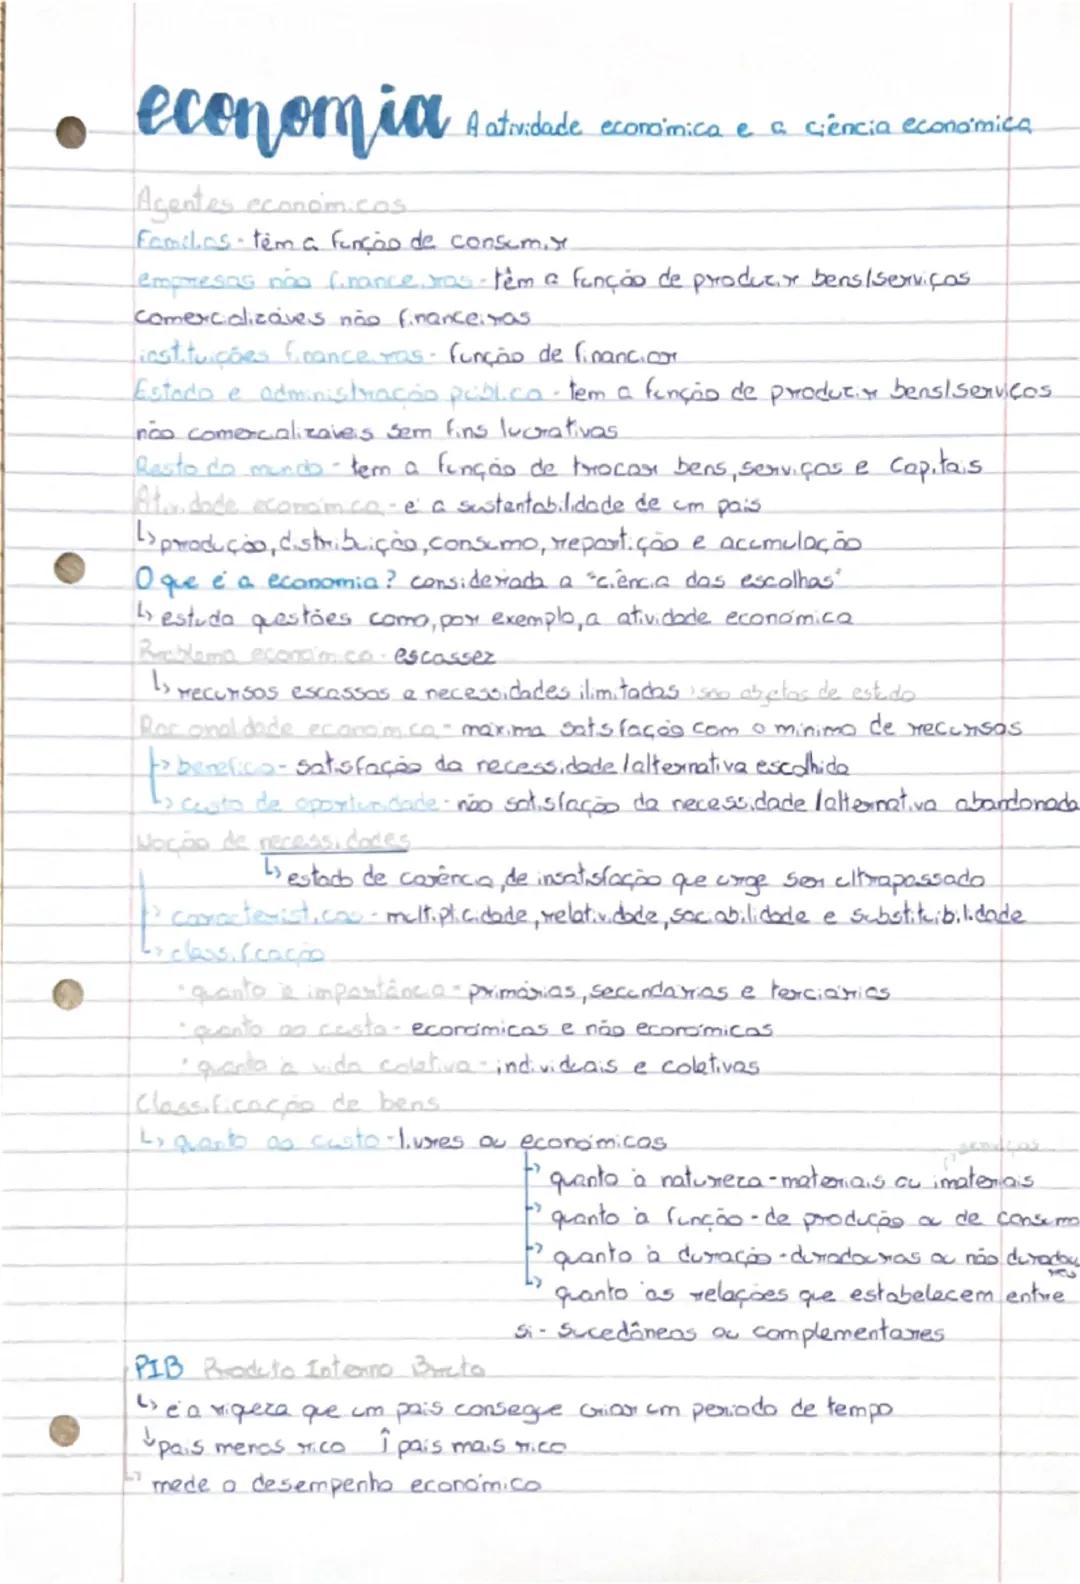 economia A atividade económica e a ciência económica
Agentes económicos
Famílias - têm a função de consumir
empresas não financeiras - têm a função de produzir bens/serviços
comercializáveis não financeiras
instituições financeiras - função de financiar
Estado e administração pública - tem a função de produzir bens/serviços
não comercalizaveis sem fins lucrativos
Resto do mundo - tem a função de trocar bens, serviços e capitais
Atividade económica - é a sustentabilidade de um país
↳ produção, distribuição, consumo, repartição e acumulação
O que é a economia? considerada a "ciência das escolhas"
↳ estuda questões como, por exemplo, a atividade económica
Problema económico - escassez
↳ recursos escassos e necessidades ilimitadas são objetos de estudo
Racionalidade económica - máxima satisfação com o mínimo de recursos
↳ benefício - satisfação da necessidade/alternativa escolhida
↳ custo de oportunidade - não satisfação da necessidade/alternativa abandonada
Noção de necessidades
↳ estado de carência, de insatisfação que urge ser ultrapassado
↳ características - multiplicidade, relatividade, saciabilidade e substituibilidade
↳ classificação
• quanto à importância - primárias, secundárias e terciárias
• quanto ao custo - económicas e não económicas
• quanto à vida coletiva - individuais e coletivas
Classificação de bens
↳ quanto ao custo - livres ou económicos
serviços
↳ quanto à natureza - materiais ou imateriais
↳ quanto à função - de produção ou de consumo
↳ quanto à duração - duradouras ou não duradouras
↳ quanto às relações que estabelecem entre
si - sucedâneas ou complementares
PIB Produto Interno Bruto
↳ é a riqueza que um país consegue criar um período de tempo
↓ país menos rico ↑ país mais rico
↳ mede o desempenho económico